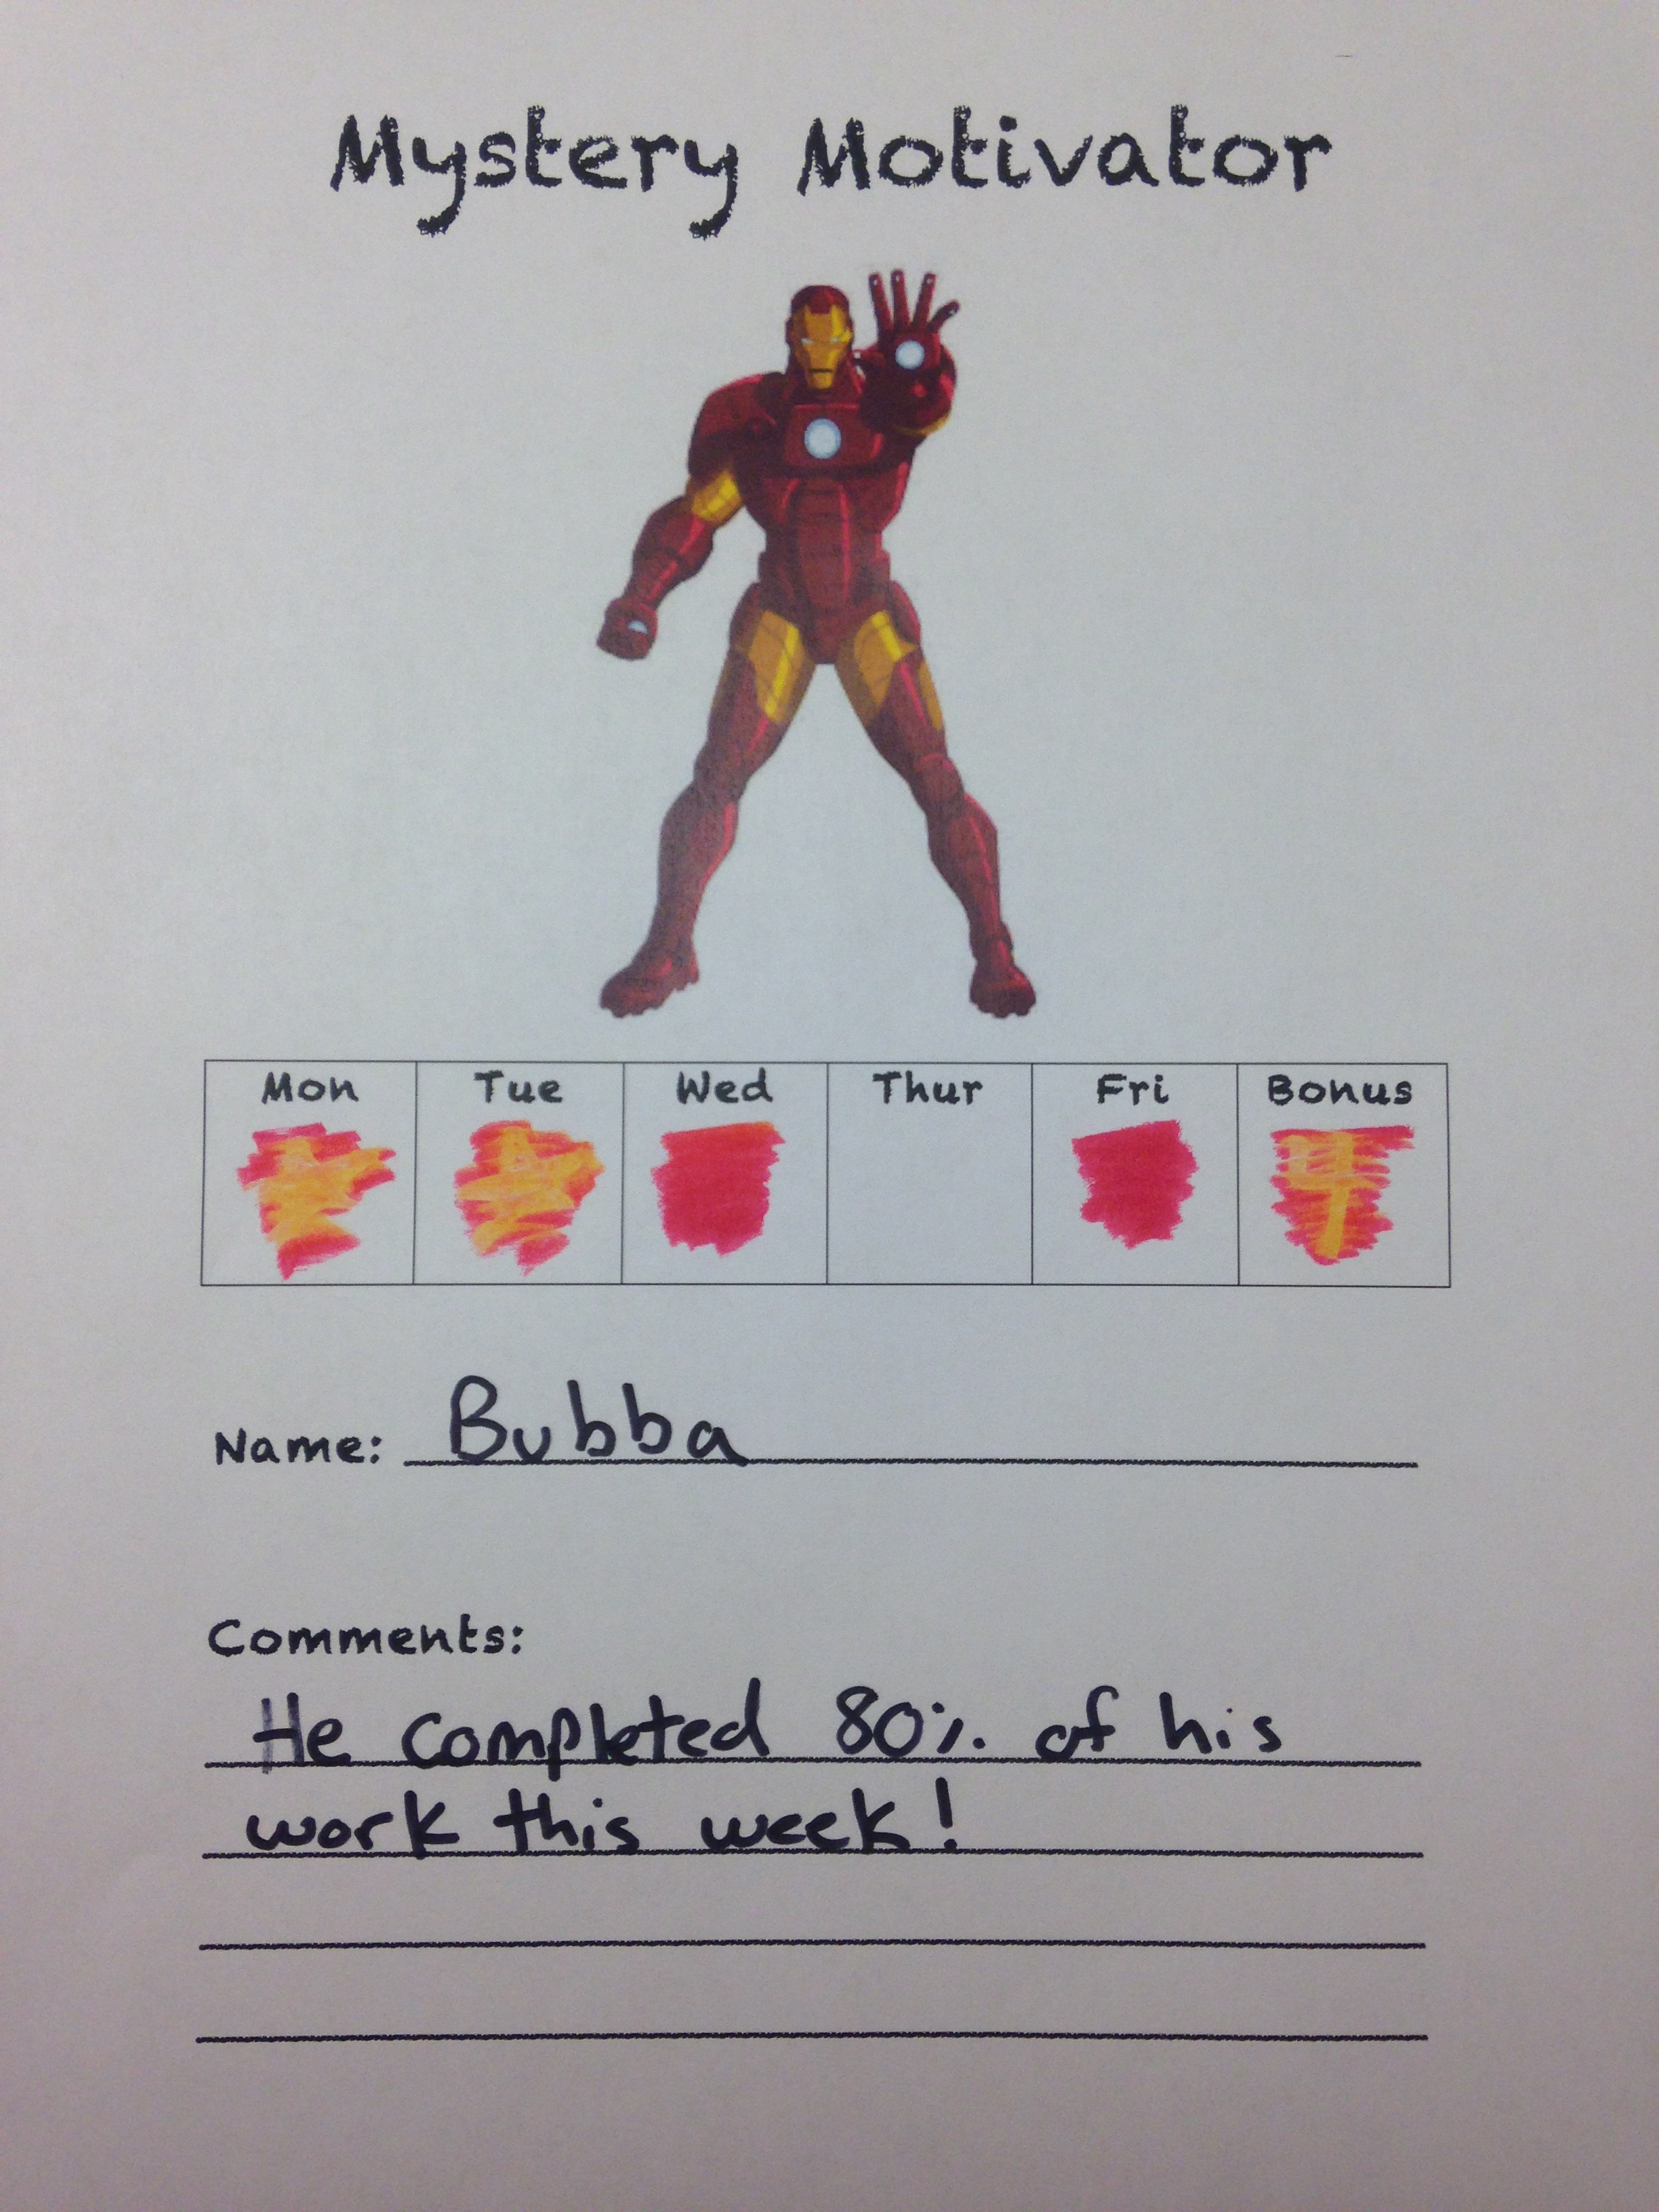 Mystery Motivator
Mon Tue Wed Thur Fri Bonus
4
Name: Bubba
Comments:
He completed 80% of his
work this week!